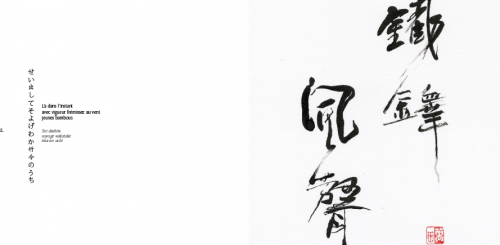 せい出してそよげわか竹今のうち
Là dans l'instant
avec vigueur frémissez au vent
jeunes bambous
Sei dashite
soyoge wakatake
ima no uchi
鐵鐸
風聲